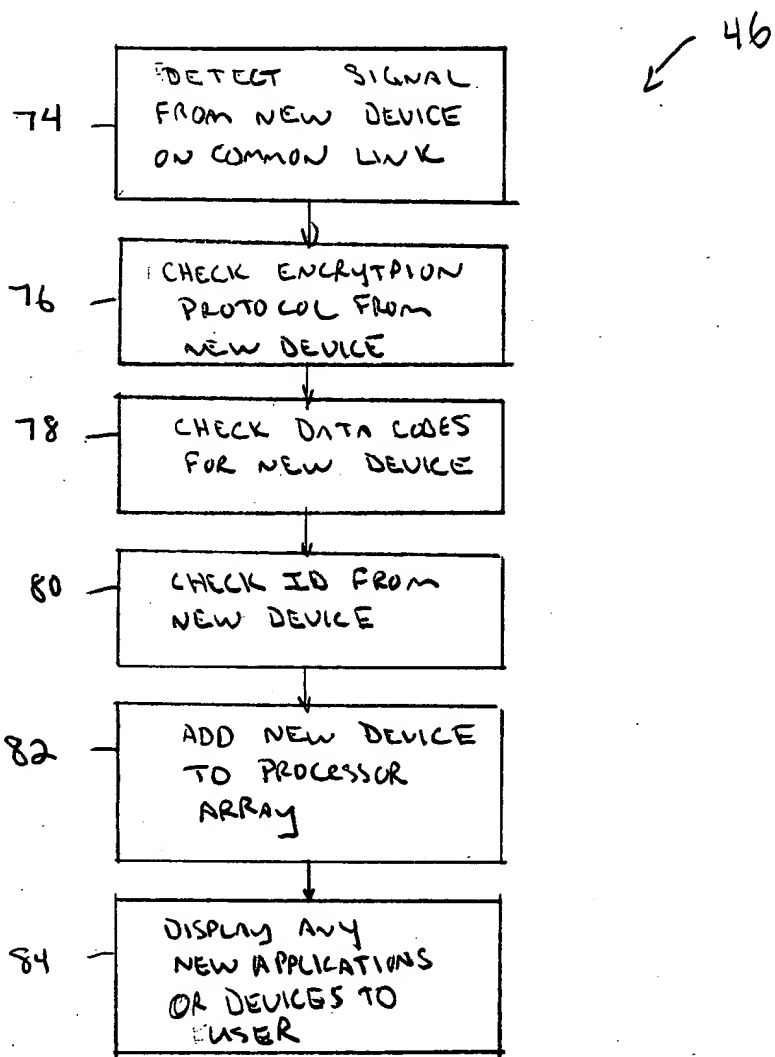 46
74
DETECT SIGNAL
FROM NEW DEVICE
ON COMMON LINK
76
CHECK ENCRYTPION
PROTOCOL FROM
NEW DEVICE
78
CHECK DATA CODES
FOR NEW DEVICE
80
CHECK ID FROM
NEW DEVICE
82
ADD NEW DEVICE
TO PROCESSOR
ARRAY
84
DISPLAY ANY
NEW APPLICATIONS
OR DEVICES TO
USER